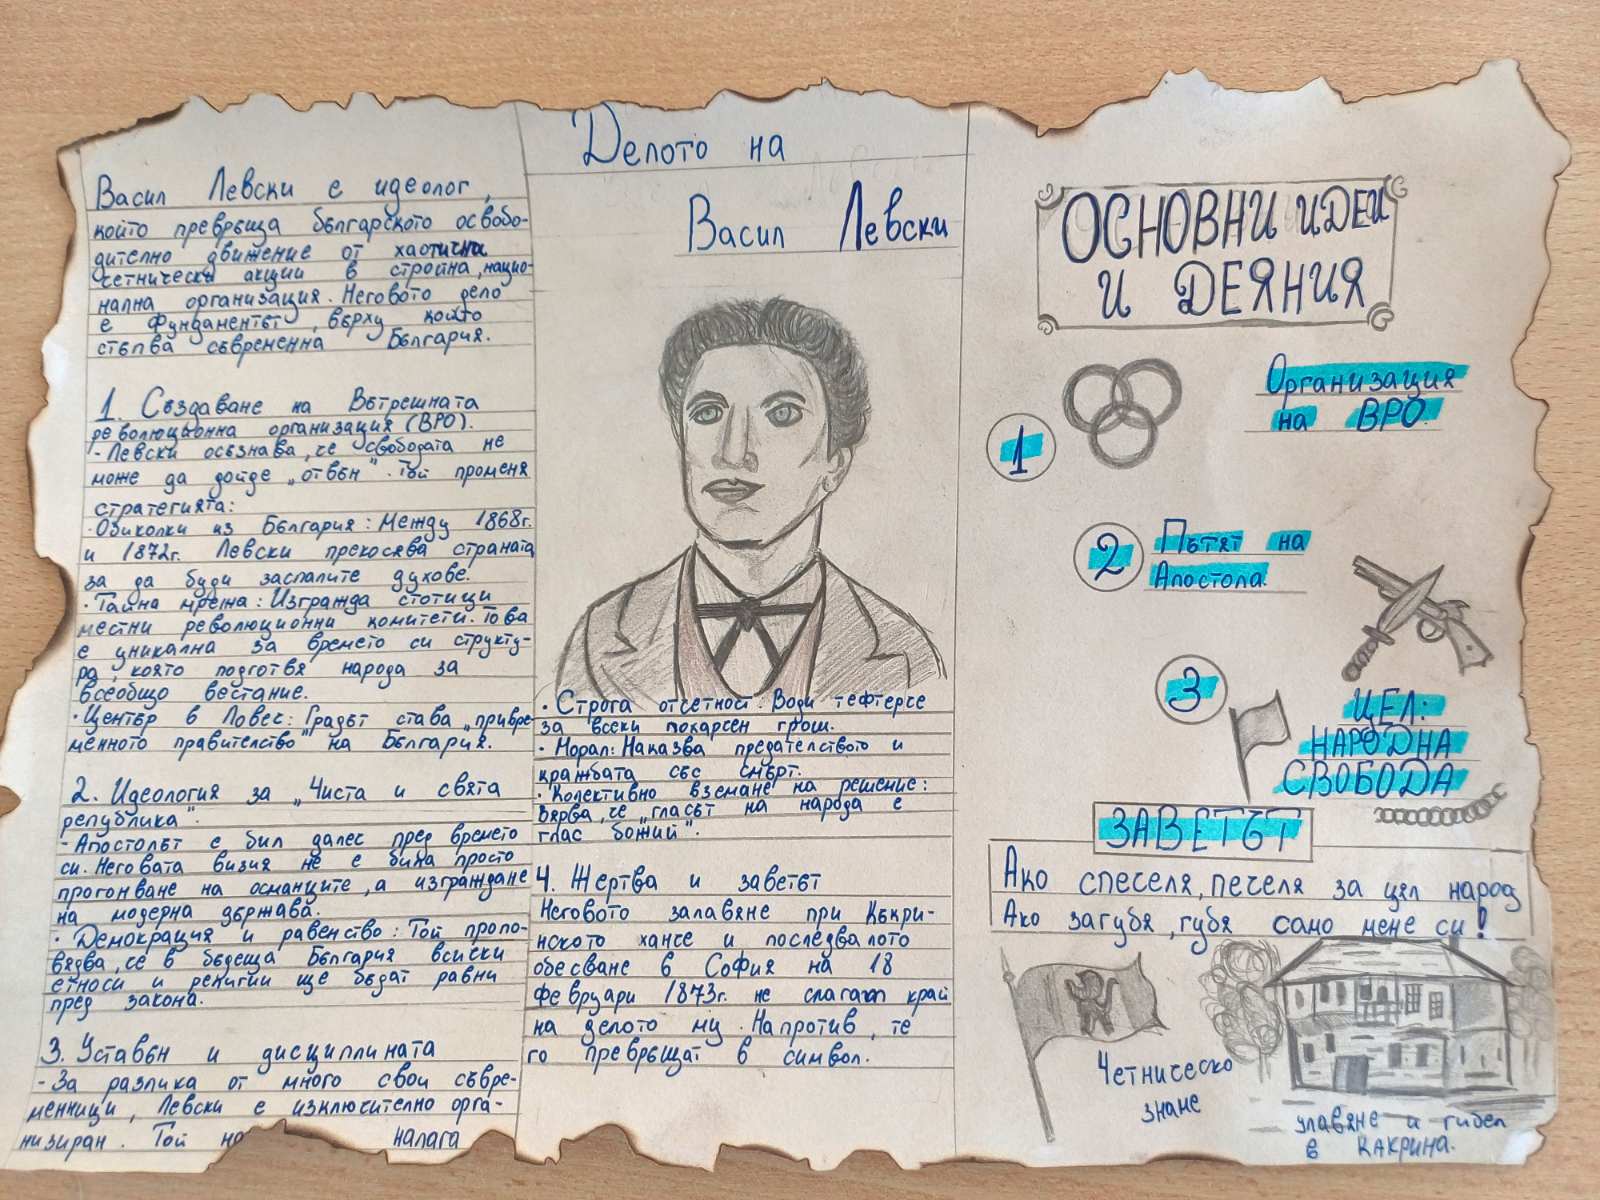 Васил Левски е идеолог,
който превръща българското освобо-
дително движение от хаотични
четнически акции в стройна, нацио-
нална организация. Неговото дело
е фундаментът, върху който
стъпва съвременна България.
1. Създаване на Вътрешната
революционна организация (ВРО).
- Левски осъзнава, че свободата не
може да дойде „отвън". Той променя
стратегията:
· Обиколки из България: Между 1868г.
и 1872г. Левски прекосява страната
за да буди заспалите духове.
· Тайна мрежа: Изгражда стотици
местни революционни комитети. Това
е уникална за времето си структу-
ра, която подготвя народа за
всеобщо въстание.
· Център в Ловеч: Градът става „привре-
менното правителство" на България.
2. Идеология за „Чиста и свята
република".
- Апостолът е бил далеч пред времето
си. Неговата визия не е била просто
прогонване на османците, а изграждане
на модерна държава.
· Демокрация и равенство: Той пропо-
вядва, че в бъдеща България всички
етноси и религии ще бъдат равни
пред закона.
3. Уставън и дисциплината
- За разлика от много свои съвре-
менници, Левски е изключително орга-
низиран. Той налага
Делото на
Васил Левски
· Строга отчетност: Води тефтерче
за всеки похарчен грош.
· Морал: Наказва предателството и
кражбата със смърт.
· Колективно вземане на решение:
Вярва, че „гласът на народа е
глас божий".
4. Жертва и заветът
Неговото залавяне при Къкри-
нското ханче и последвалото
обесване в София на 18
февруари 1873г. не слагат край
на делото му. Напротив, те
го превръщат в символ.
ОСНОВНИ ИДЕИ
И ДЕЯНИЯ
1
Организация
на ВРО.
2
Пътят на
Апостола.
3
ЦЕЛ:
НАРОДНА
СВОБОДА
ЗАВЕТЪТ
Ако спечеля, печеля за цял народ
Ако загубя, губя само мене си!
Четническо
знаме
улавяне и гибел
в КАКРИНА.